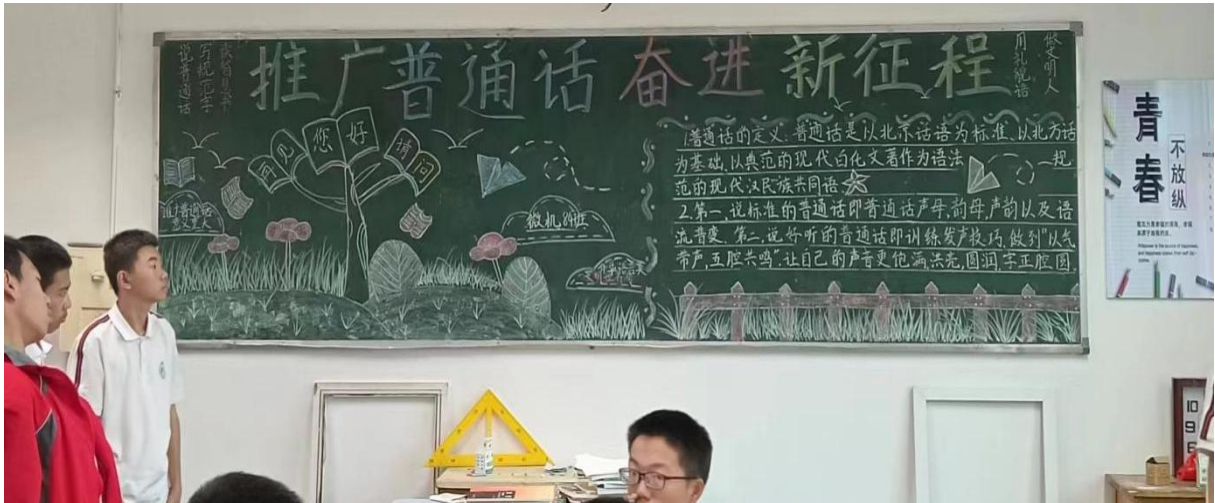 推广普通话 奋进新征程
说普通话
写规范字
用礼貌语
做文明人
您好
再见
请问
微机84班
1.普通话的定义:普通话是以北京话语为标准,以北方话
为基础,以典范的现代白化文著作为语法 一规
范的现代汉民族共同语
2.第一,说标准的普通话即普通话声母,韵母,声韵以及语
流音变.第二,说好听的普通话即训练发声技巧,做到"以气
带声,五腔共鸣",让自己的声音更饱满,洪亮,圆润,字正腔圆.
青春
不放纵
10
9
6